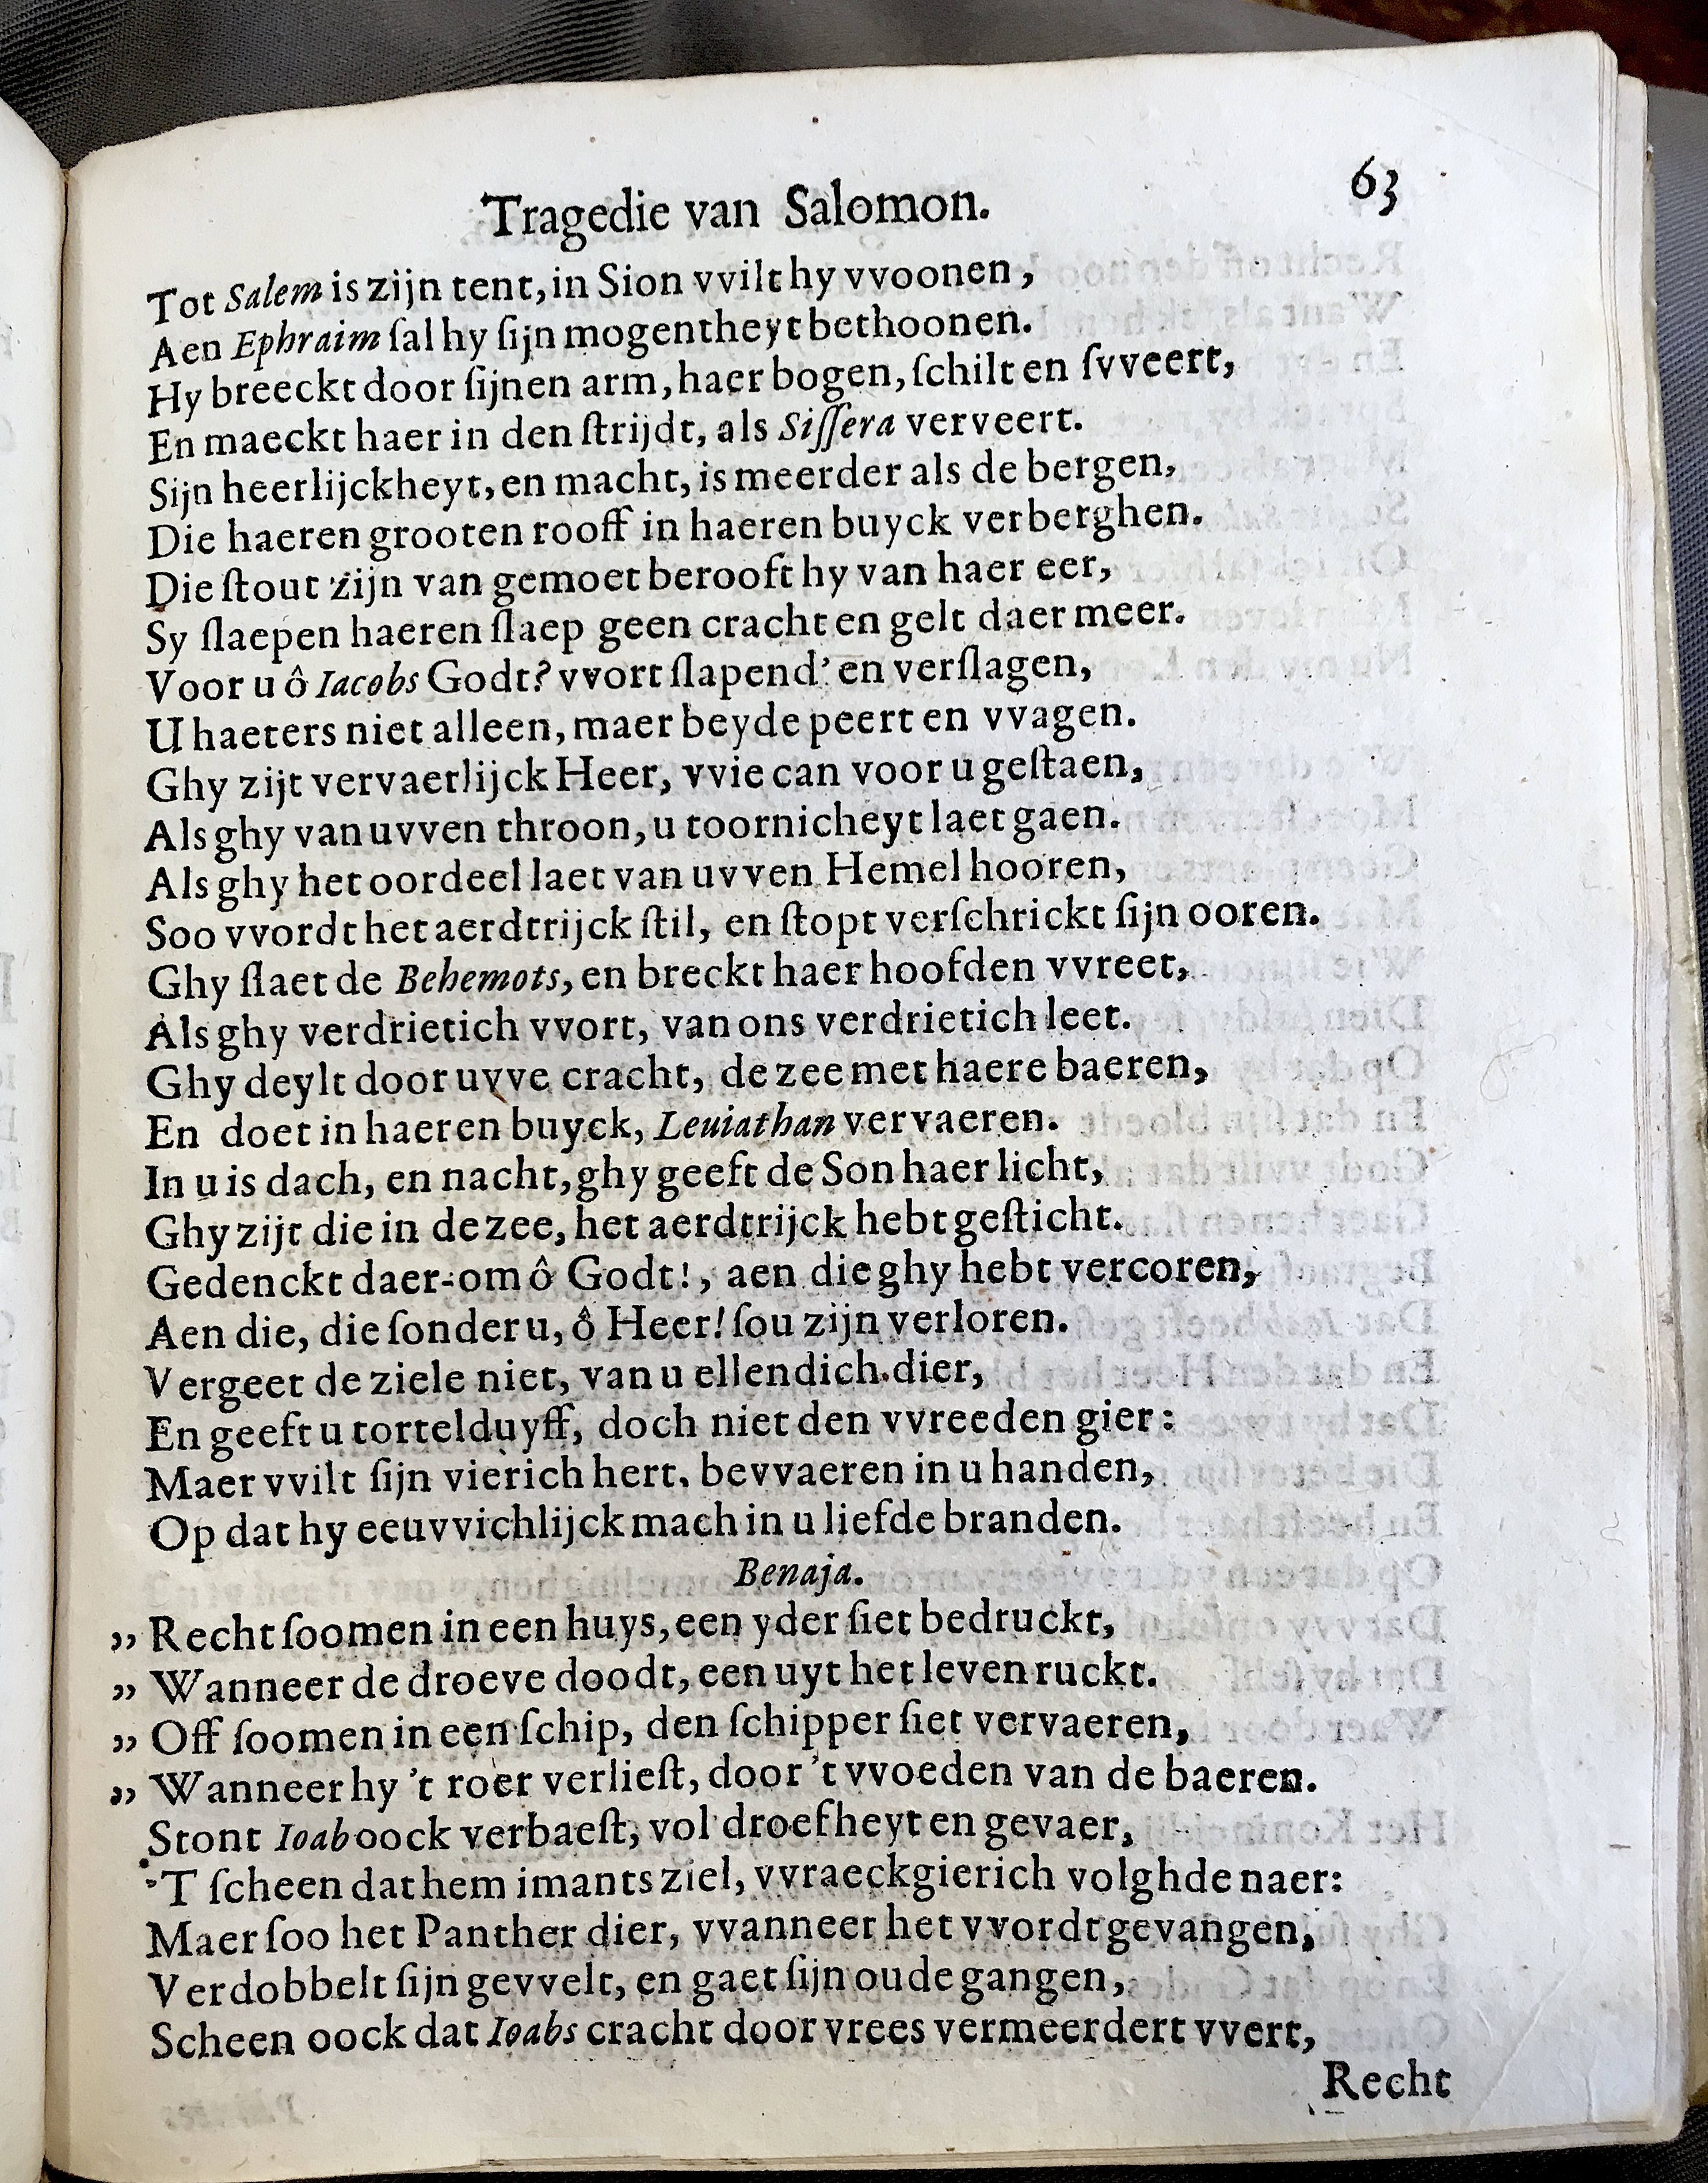 Tragedie van Salomon. 63
Tot Salem is zijn tent, in Sion vvilt hy vvoonen,
Aen Ephraim ſal hy ſijn mogentheyt bethoonen.
Hy breeckt door ſijnen arm, haer bogen, ſchilt en ſvveert,
En maeckt haer in den ſtrijdt, als Siſſera verveert.
Sijn heerlijckheyt, en macht, is meerder als de bergen,
Die haeren grooten rooff in haeren buyck verberghen.
Die ſtout zijn van gemoet berooft hy van haer eer,
Sy ſlaepen haeren ſlaep geen cracht en gelt daer meer.
Voor u ô Iacobs Godt? vvort ſlapend' en verſlagen,
U haeters niet alleen, maer beyde peert en vvagen.
Ghy zijt vervaerlijck Heer, vvie can voor u geſtaen,
Als ghy van uvven throon, u toornicheyt laet gaen.
Als ghy het oordeel laet van uvven Hemel hooren,
Soo vvordt het aerdtrijck ſtil, en ſtopt verſchrickt ſijn ooren.
Ghy ſlaet de Behemots, en breckt haer hoofden vvreet,
Als ghy verdrietich vvort, van ons verdrietich leet.
Ghy deylt door uvve cracht, de zee met haere baeren,
En doet in haeren buyck, Leuiathan vervaeren.
In u is dach, en nacht, ghy geeft de Son haer licht,
Ghy zijt die in de zee, het aerdtrijck hebt geſticht.
Gedenckt daer-om ô Godt!, aen die ghy hebt vercoren,
Aen die, die ſonder u, ô Heer! ſou zijn verloren.
Vergeet de ziele niet, van u ellendich dier,
En geeft u tortelduyff, doch niet den vvreeden gier:
Maer vvilt ſijn vierich hert, bevvaeren in u handen,
Op dat hy eeuvvichlijck mach in u liefde branden.
Benaja.
„ Recht ſoomen in een huys, een yder ſiet bedruckt,
„ Wanneer de droeve doodt, een uyt het leven ruckt.
„ Off ſoomen in een ſchip, den ſchipper ſiet vervaeren,
„ Wanneer hy 't roer verlieſt, door 't vvoeden van de baeren.
Stont Ioab oock verbaeſt, vol droefheyt en gevaer,
'T ſcheen dat hem imants ziel, vvraeckgierich volghde naer:
Maer ſoo het Panther dier, vvanneer het vvordt gevangen,
Verdobbelt ſijn gevvelt, en gaet ſijn oude gangen,
Scheen oock dat Ioabs cracht door vrees vermeerdert vvert,
Recht